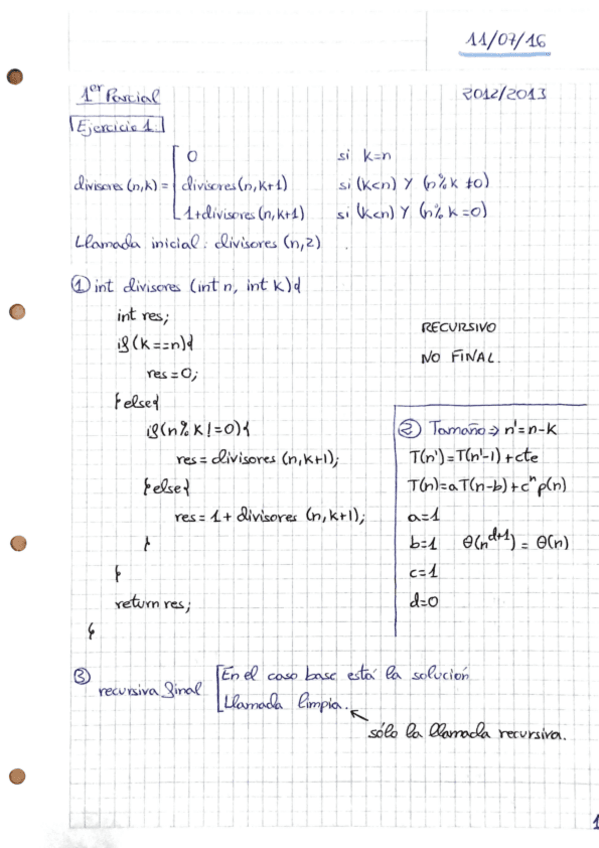 11/07/16
1er Parcial
2012/2013
Ejercicio 1
divisores (n,k) =
0 si k=n
divisores (n,k+1) si (k<n) Y (n%k ≠0)
1+divisores (n,k+1) si (k<n) Y (n%k =0)
Llamada inicial: divisores (n,2)
① int divisores (int n, int k){
int res;
if (k==n){
res=0;
}else{
if(n%k!=0){
res=divisores (n,k+1);
}else{
res=1+divisores (n,k+1);
}
}
return res;
}
RECURSIVO
NO FINAL.
② Tamaño ⇒ n'=n-k
T(n')=T(n'-1)+cte
T(n)=aT(n-b)+c^n p(n)
a=1
b=1 Θ(n^d+1) = Θ(n)
c=1
d=0
③
recursiva final
En el caso base está la solución
Llamada limpia.
sólo la llamada recursiva.
1